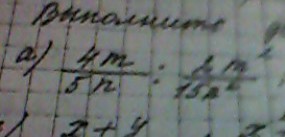 Выполните
а) 4m/5n : 2m²/15n²
x + y